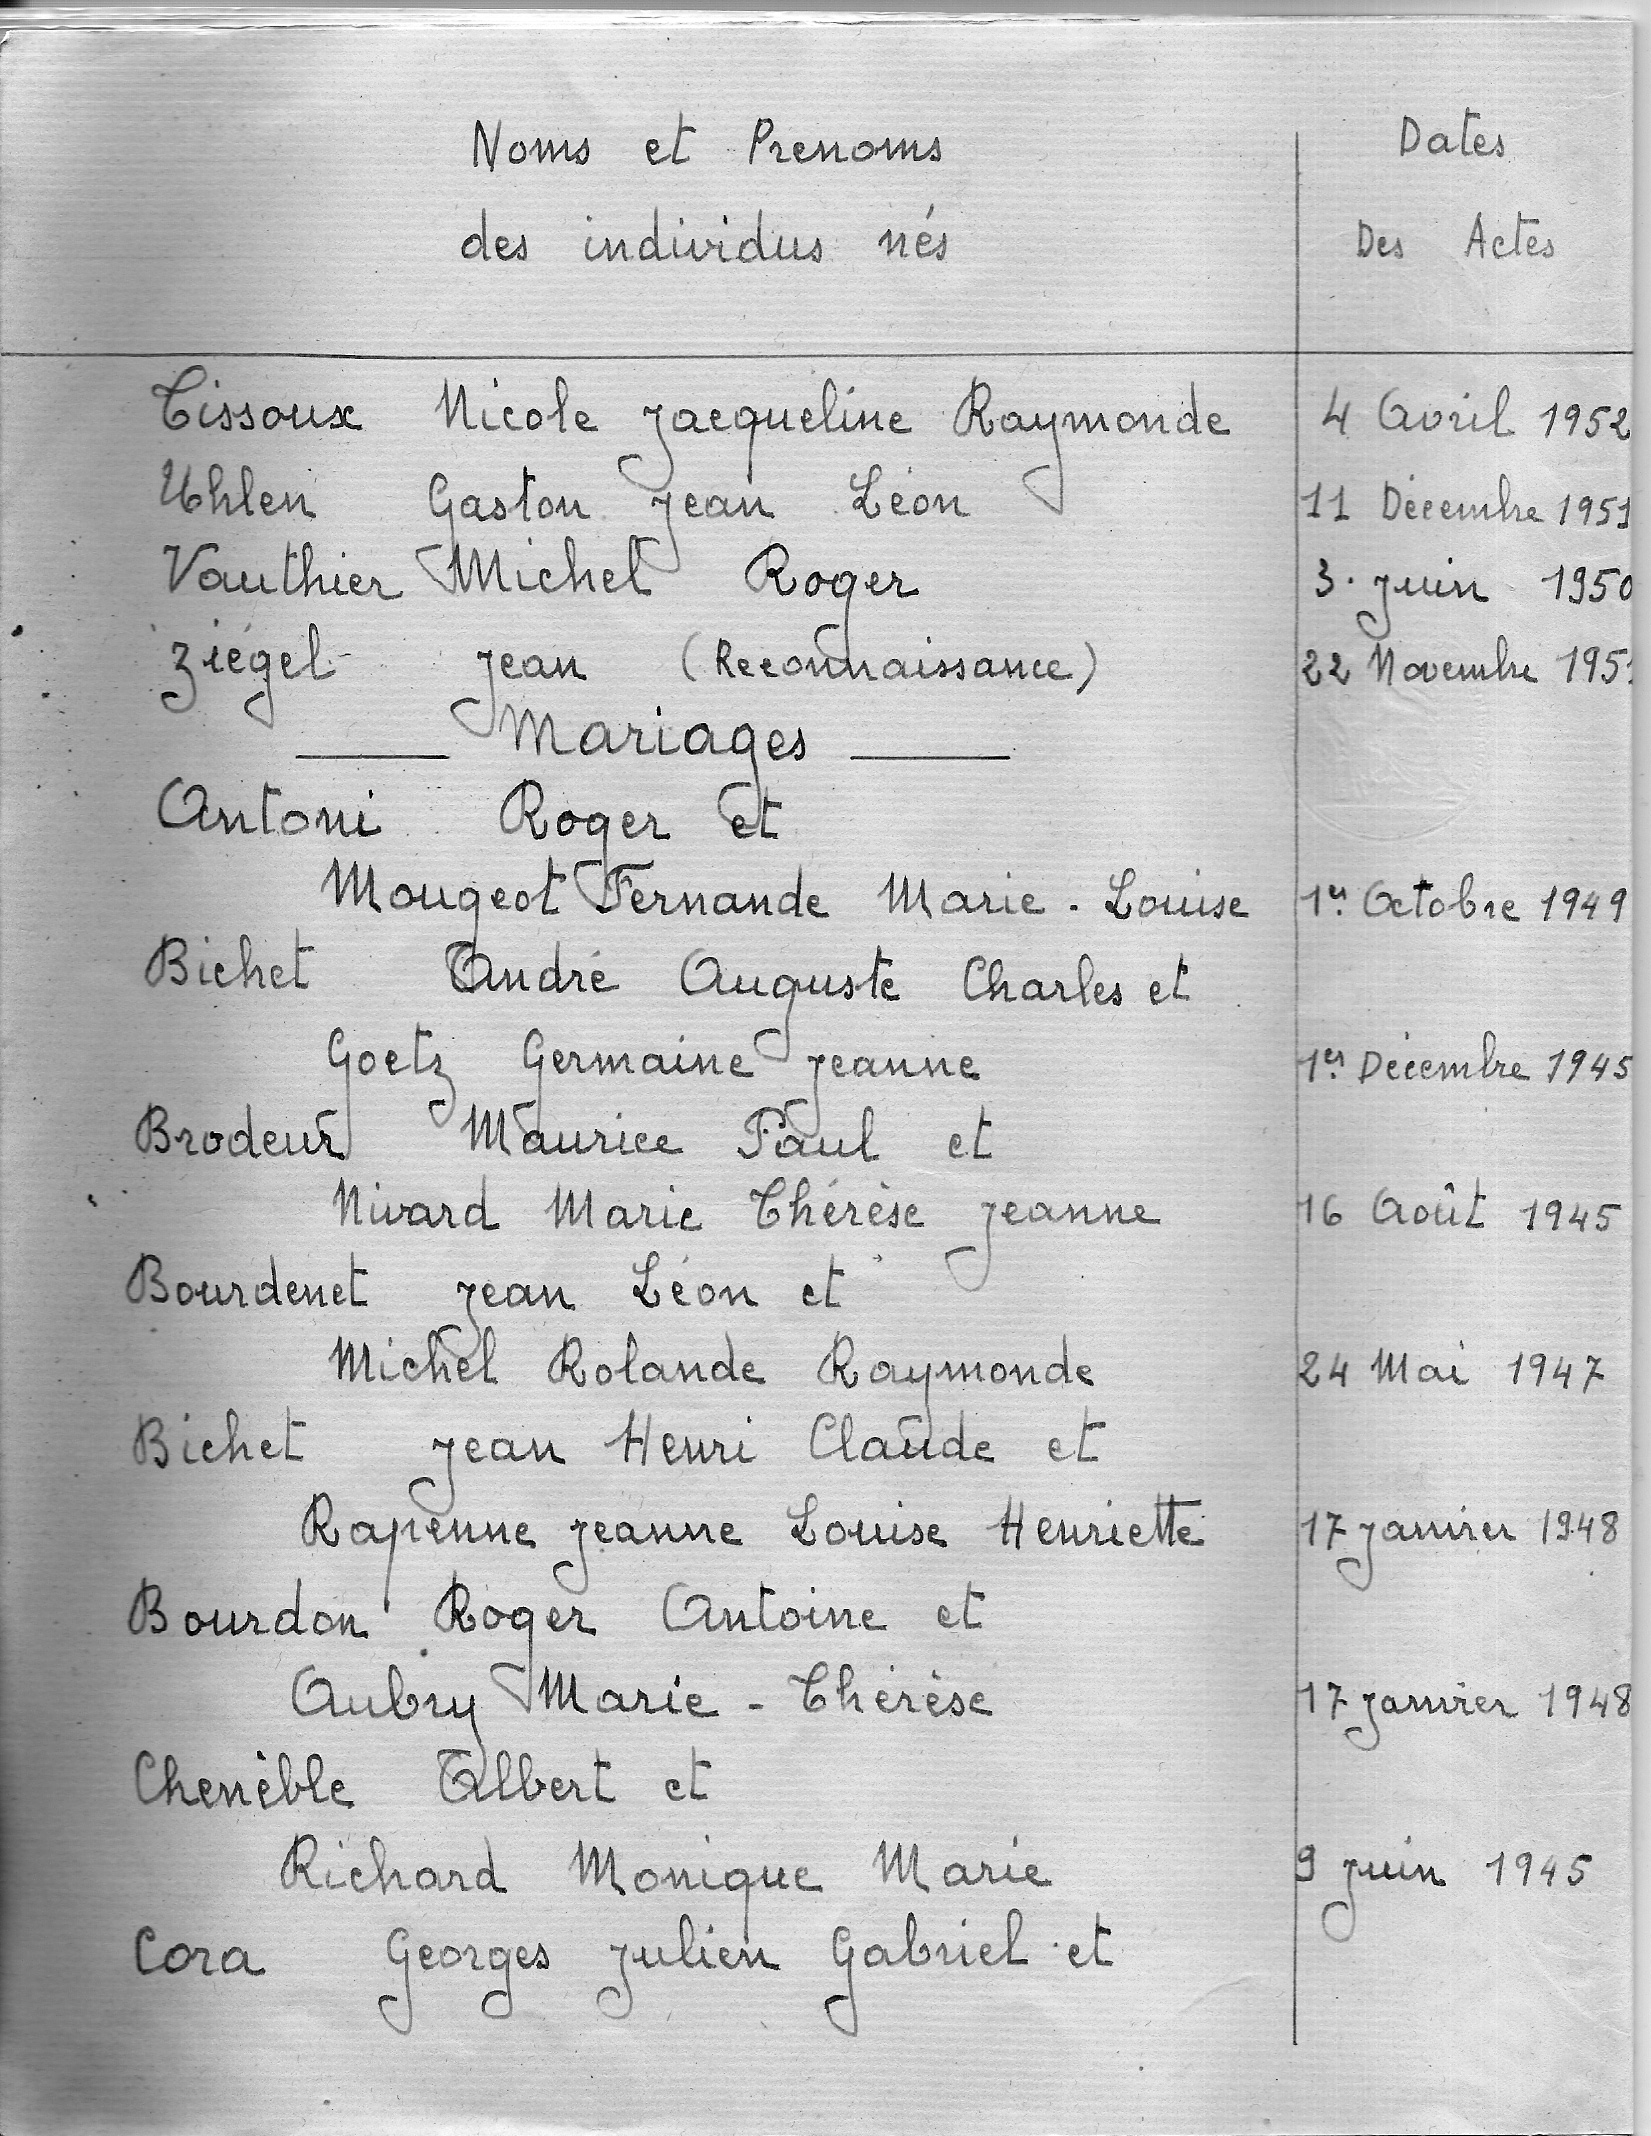 Noms et Prenoms Dates
des individus nés Des Actes
Tissoux Nicole Jacqueline Raymonde 4 Avril 1952
Uhlen Gaston Jean Léon 11 Décembre 1951
Vauthier Michel Roger 3. Juin 1950
Ziégel Jean (Reconnaissance) 22 Novembre 195
Mariages
Antoni Roger et
Mougeot Fernande Marie-Louise 1er Octobre 1949
Bichet André Auguste Charles et
Goetz Germaine Jeanne 1er Décembre 1945
Brodeur Maurice Paul et
Nivard Marie Thérèse Jeanne 16 Août 1945
Bourdenet Jean Léon et
Michel Rolande Raymonde 24 Mai 1947
Bichet Jean Henri Claude et
Rapenne Jeanne Louise Henriette 17 Janvier 1948
Bourdon Roger Antoine et
Aubry Marie-Thérèse 17 Janvier 1948
Chenèble Albert et
Richard Monique Marie 9 Juin 1945
Cora Georges Julien Gabriel et